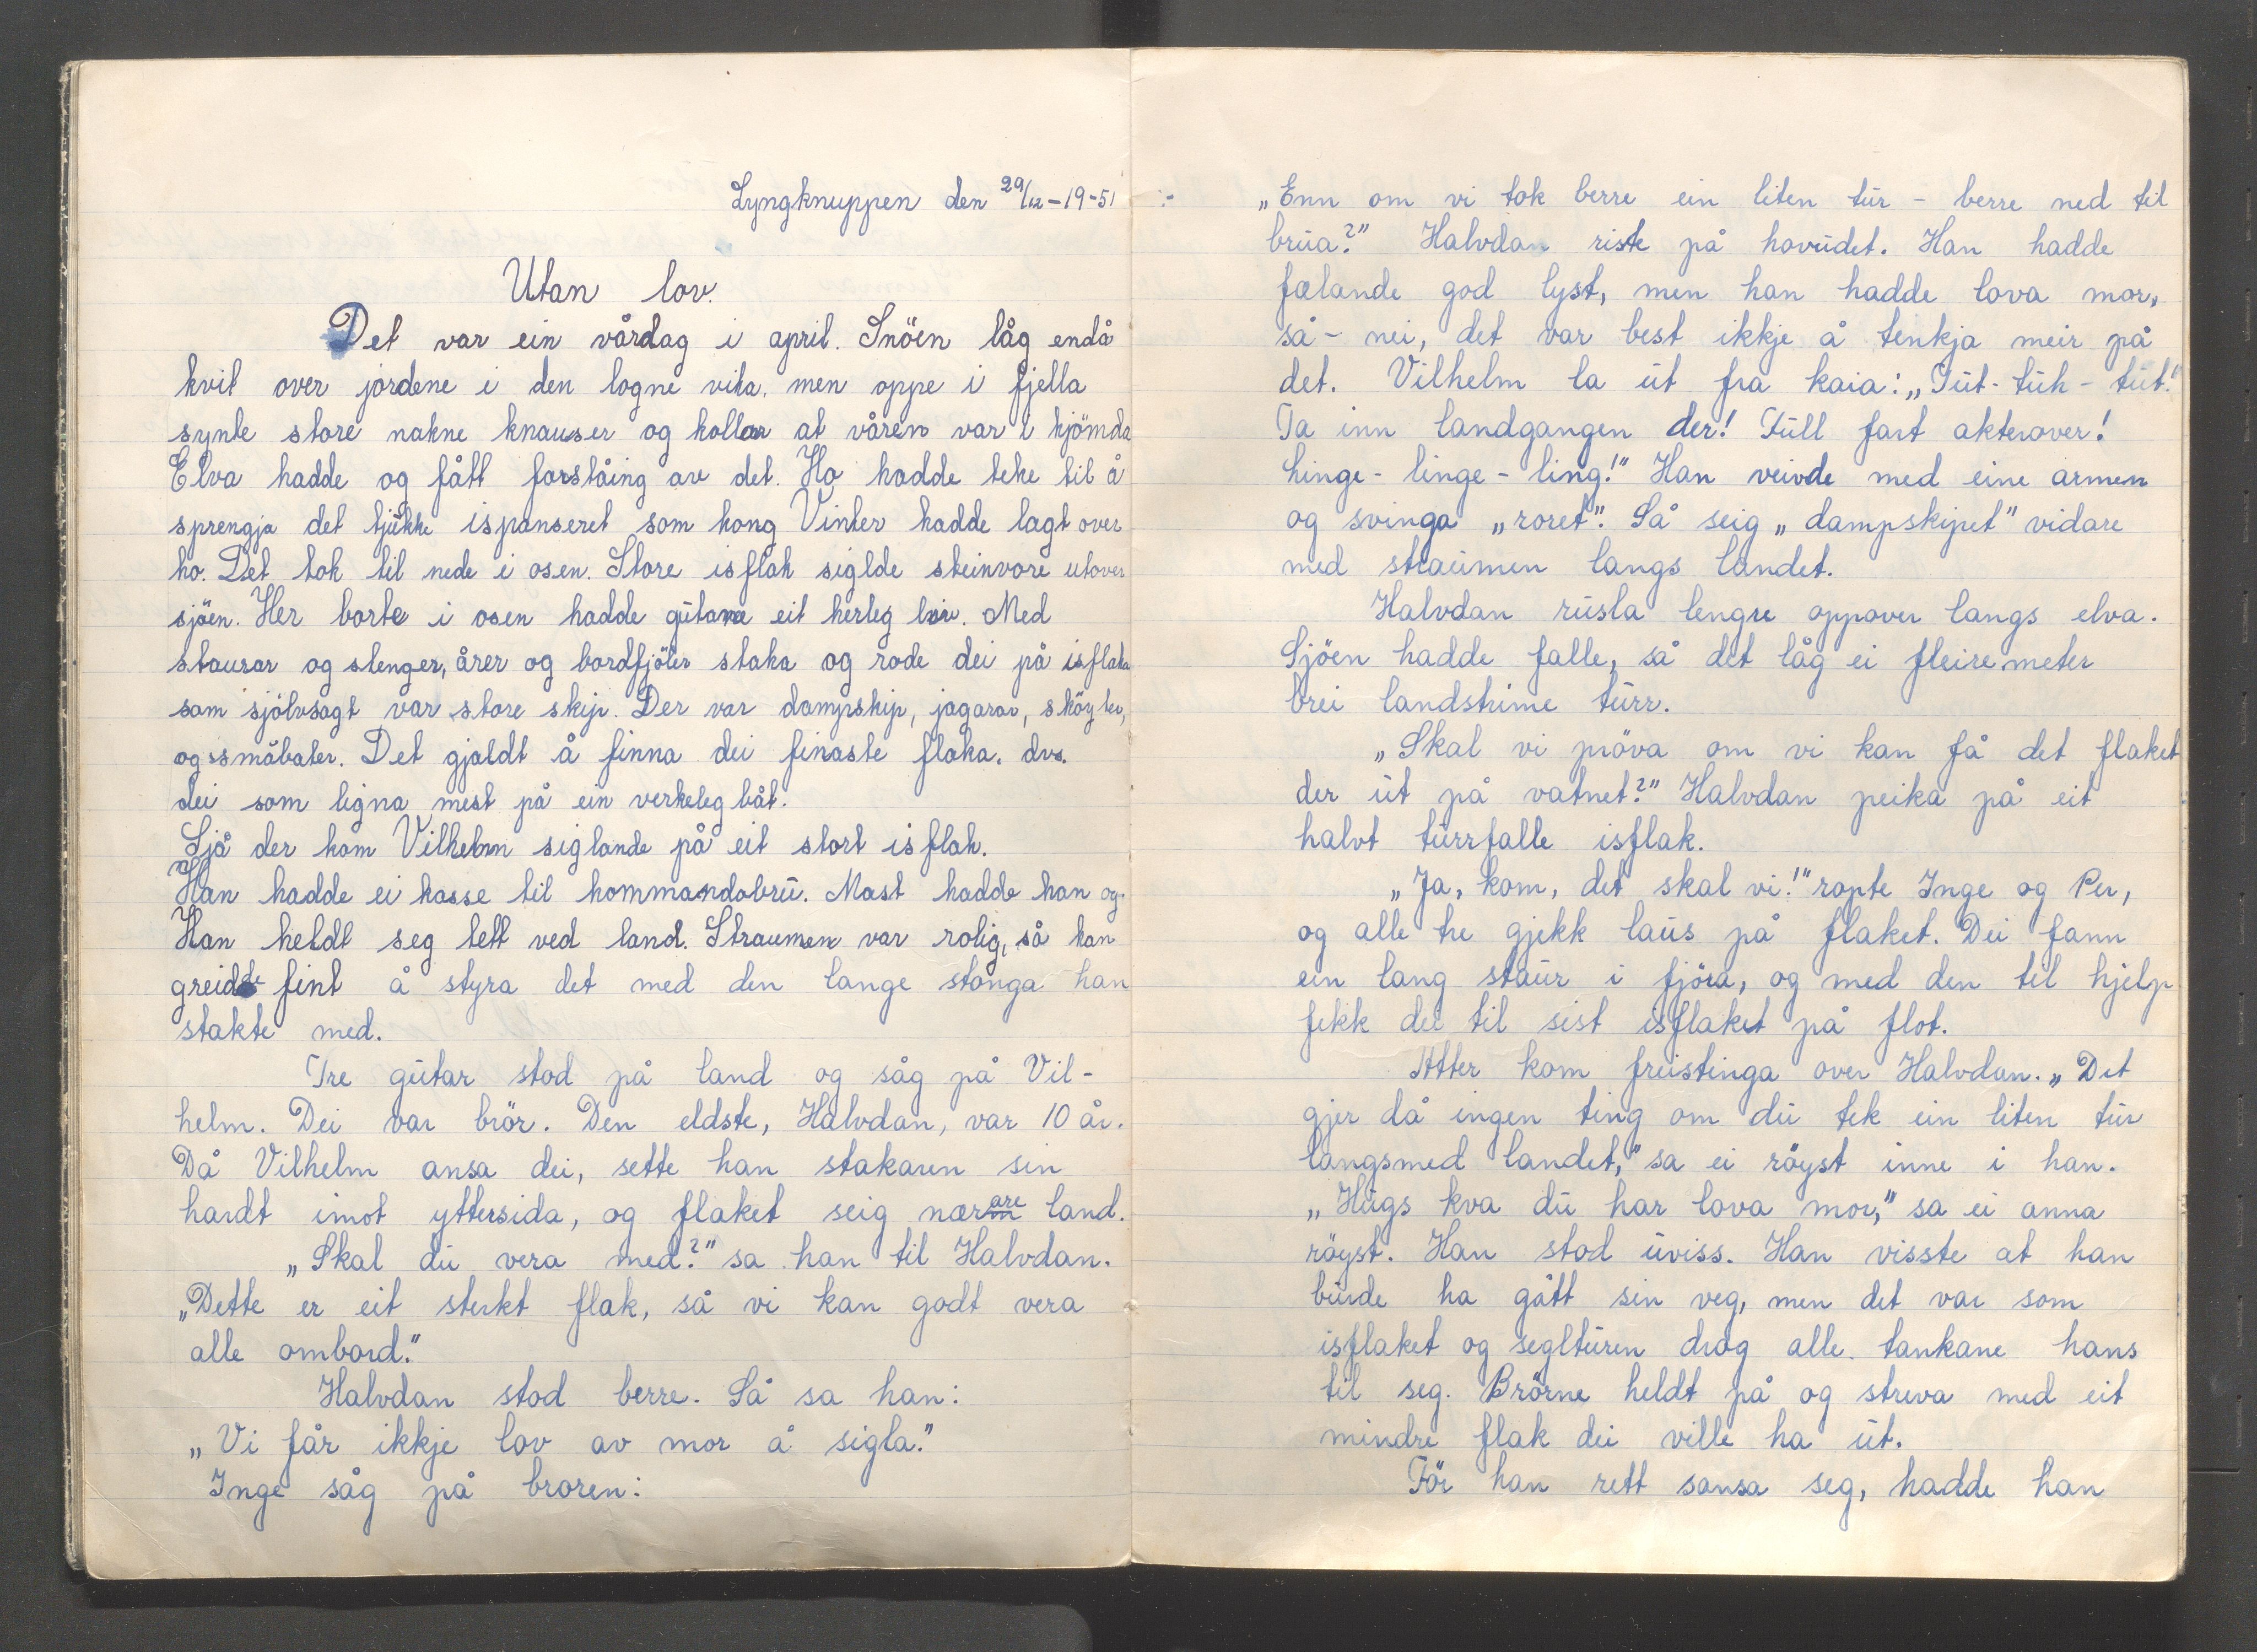 Lyngknuppen den 29/12-19-51
Utan lov.
Det var ein vårdag i april. Snöen låg endå
kvit over jordene i den logne vika, men oppe i fjella
synte store nakne knauser og kollar at våren var i kjömda
Elva hadde og fått forståing av det. Ho hadde teke til å
sprengja det tjukke ispanseret som kong Vinter hadde lagt over
ho. Det tok til nede i osen. Store isflak siglde steinvore utover
sjöen. Her borte i osen hadde gutane eit herleg liv. Med
staurar og stenger, årer og bordfjöler staka og rode dei på isflaka
som sjölvsagt var store skip. Der var dampskip, jagarar, sköyter,
og småbater. Det gjaldt å finna dei finaste flaka, dvs.
dei som ligna mest på ein verkeleg båt.
Sjå der kom Vilhelm siglande på eit stort isflak.
Han hadde ei kasse til kommandobru. Mast hadde han og.
Han heldt seg tett ved land. Straumen var rolig, så han
greidde fint å styra det med den lange stonga han
stakte med.
Tre gutar stod på land og såg på Vil-
helm. Dei var brör. Den eldste, Halvdan, var 10 år.
Då Vilhelm ansa dei, sette han stakaren sin
hardt imot yttersida, og flaket seig nærare land.
„Skal du vera med?" sa han til Halvdan.
„Dette er eit sterkt flak, så vi kan godt vera
alle ombord."
Halvdan stod berre. Så sa han:
„Vi får ikkje lov av mor å sigla."
Inge såg på broren:
„Enn om vi tok berre ein liten tur - berre ned til
brua?" Halvdan riste på hovudet. Han hadde
fælande god lyst, men han hadde lova mor,
så - nei, det var best ikkje å tenkja meir på
det. Vilhelm la ut fra kaia: „Tut-tuh-tut!"
Ta inn landgangen der! Full fart akterover!
Linge-linge-ling!" Han veivde med eine armen
og svinga „roret". Så seig „dampskipet" vidare
med straumen langs landet.
Halvdan rusla lengre oppover langs elva.
Sjöen hadde falle, så det låg ei fleire meter
brei landstrime turr.
„Skal vi pröva om vi kan få det flaket
der ut på vatnet?" Halvdan peika på eit
halvt turrfalle isflak.
„Ja, kom, det skal vi!" ropte Inge og Per,
og alle tre gjekk laus på flaket. Dei fann
ein lang staur i fjöra, og med den til hjelp
fekk dei til sist isflaket på flot.
Atter kom freistinga over Halvdan. „Det
gjer då ingen ting om du tek ein liten tur
langsmed landet," sa ei röyst inne i han.
„Hugs kva du har lova mor," sa ei anna
röyst. Han stod uviss. Han visste at han
burde ha gått sin veg, men det var som
isflaket og seglturen drog alle tankane hans
til seg. Brörne heldt på og streva med eit
mindre flak dei ville ha ut.
För han rett sansa seg, hadde han